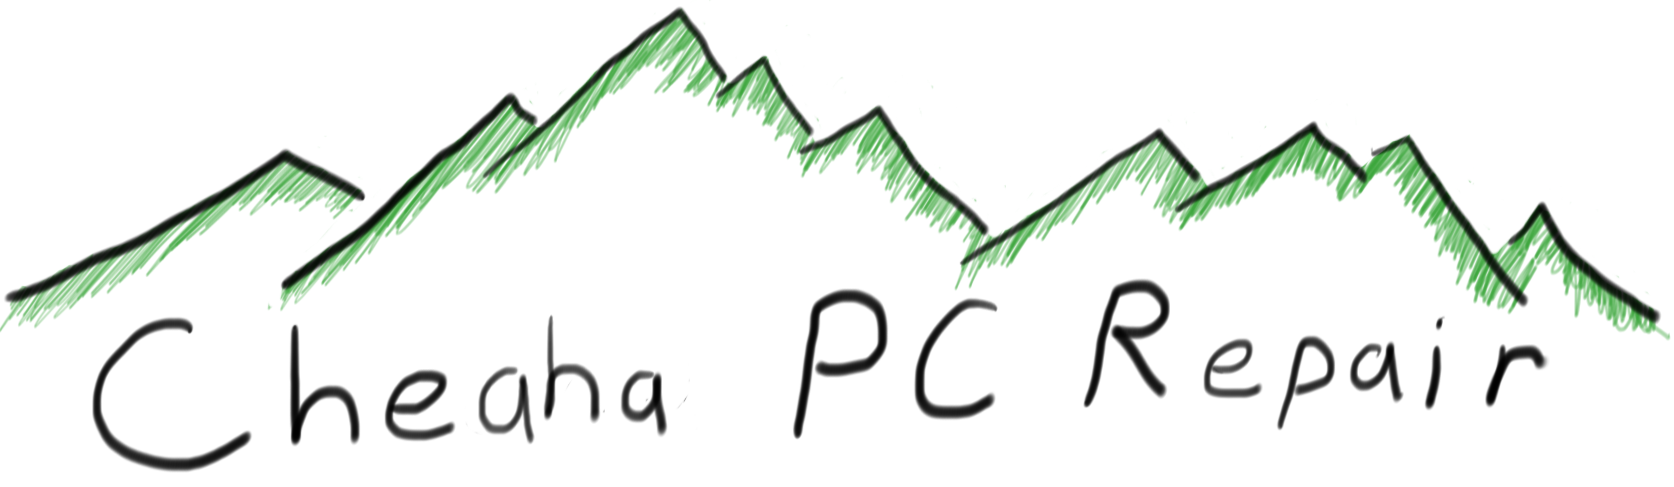 Cheaha PC Repair